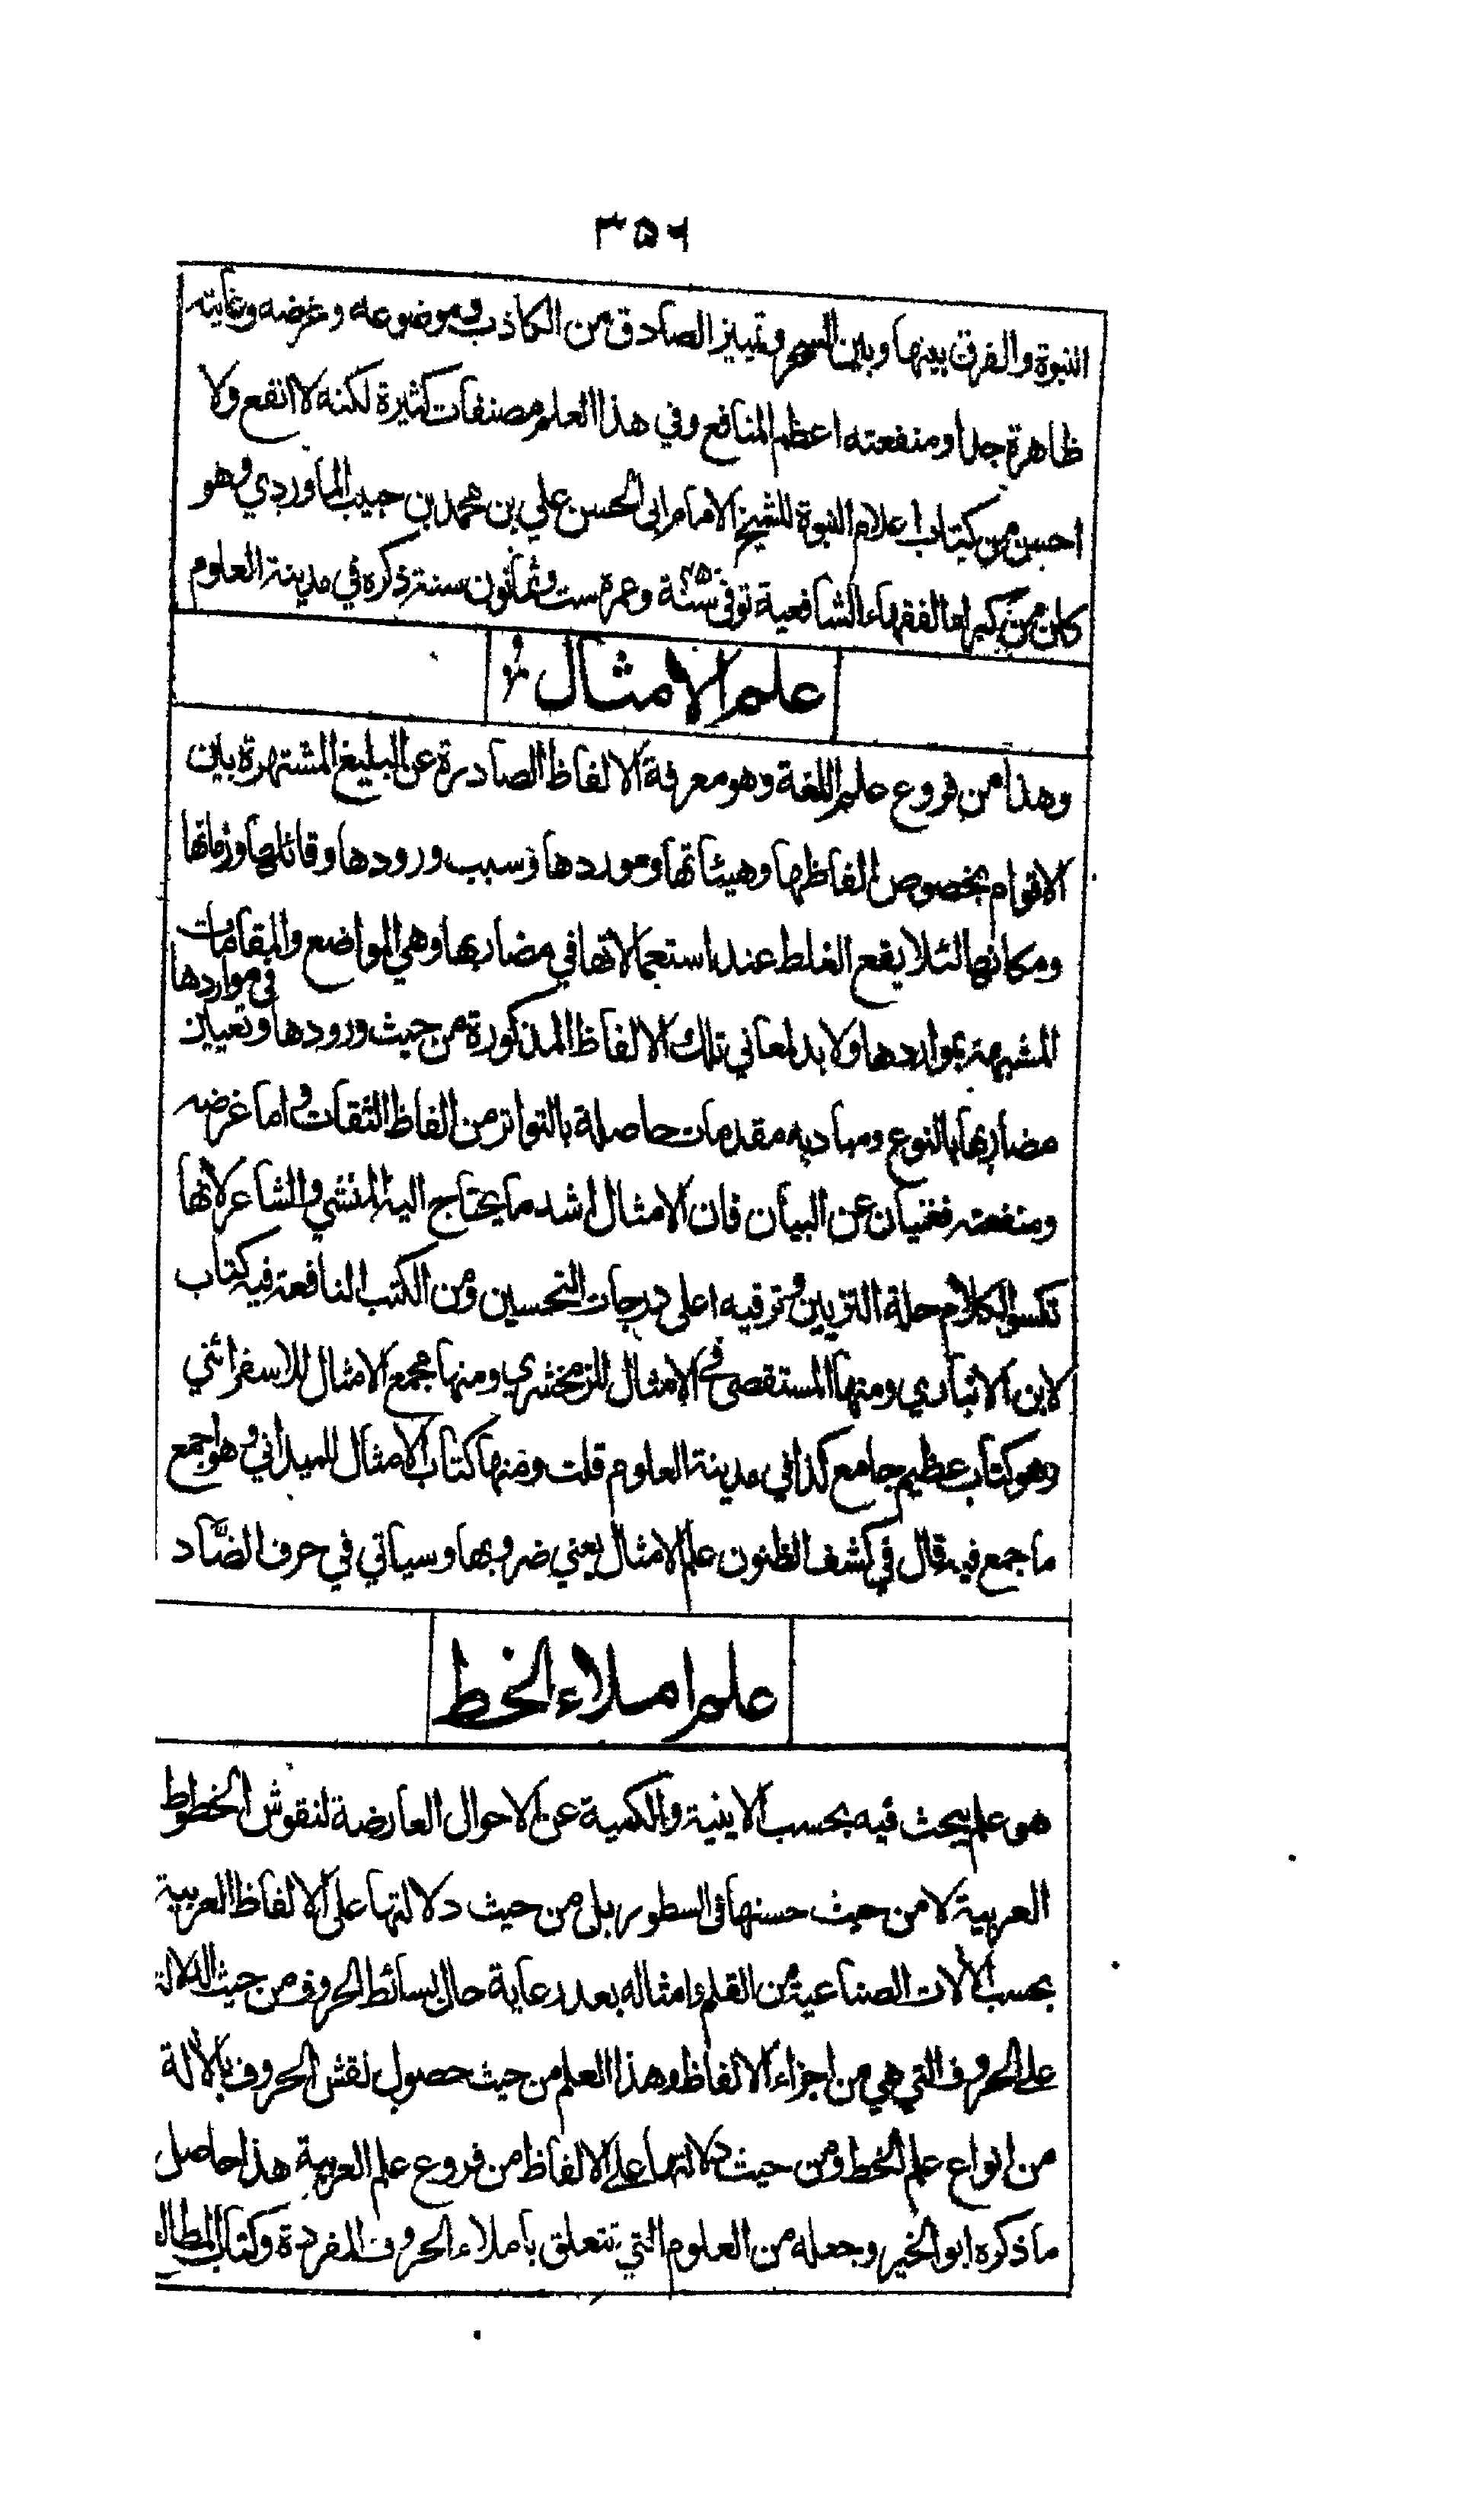 ٣٥٦
النبوة والفرق بينها وبين السحر وتمييز الصادق من الكاذب وموضوعه وغرضه وغايته
ظاهرة جدا ومنفعته اعظم المنافع وفي هذا العلم مصنفات كثيرة لكنه لا انفع ولا
احسن من كتاب اعلام النبوة للشيخ الامام ابى الحسن علي بن محمد بن حبيب الماوردي وهو
كان من كبراء الفقهاء الشافعية توفى سنة وعمره ست وثمانون سنة ذكره في مدينة العلوم
علم الامثال
وهذا من فروع علم اللغة وهو معرفة الالفاظ الصادرة عن البليغ المشتهرة بين
الاقوام بخصوص الفاظها وهيئاتها وموردها وسبب ورودها وقائلها وزمانها
ومكانها لئلا يقع الغلط عند استعمالاتها في مضاربها وهي المواضع والمقامات
المشبهة بمواردها ولا بد لمعاني تلك الالفاظ المذكورة من حيث ورودها في مواردها وتعيين
مضاربها بالنوع ومباديه مقدمات حاصلة بالتواتر من الفاظ الثقات واما غرضه
ومنفعته فغنيان عن البيان فان الامثال اشد ما يحتاج اليه المنشي والشاعر لانها
تكسو الكلام حلة التزيين وترقيه اعلى درجات التحسين ومن الكتب النافعة فيه كتاب
لابن الانباري ومنها المستقصى في الامثال للزمخشري ومنها مجمع الامثال للاسفرائني
وهو كتاب عظيم جامع كذا في مدينة العلوم قلت ومنها كتاب الامثال للميداني وهو اجمع
ما جمع فيه قال في كشف الظنون علم الامثال يعني ضروبها وسياتي في حرف الضاد
علم املاء الخط
هو علم يبحث فيه بحسب الاينية والكمية عن الاحوال العارضة لنقوش الخطوط
العربية لا من حيث حسنها فى السطور بل من حيث دلالتها على الالفاظ العربية
بحسب الالات الصناعية من القلم وامثاله بعد رعاية حال بسائط الحروف من حيث الدلالة
على الحروف التي هي من اجزاء الالفاظ وهذا العلم من حيث حصول نقش الحروف بالالة
من انواع علم الخط ومن حيث دلالتها على الالفاظ من فروع علم العربية هذا حاصل
ما ذكره ابو الخير وجعله من العلوم التي تتعلق باملاء الحروف المفردة وكتاب المطال